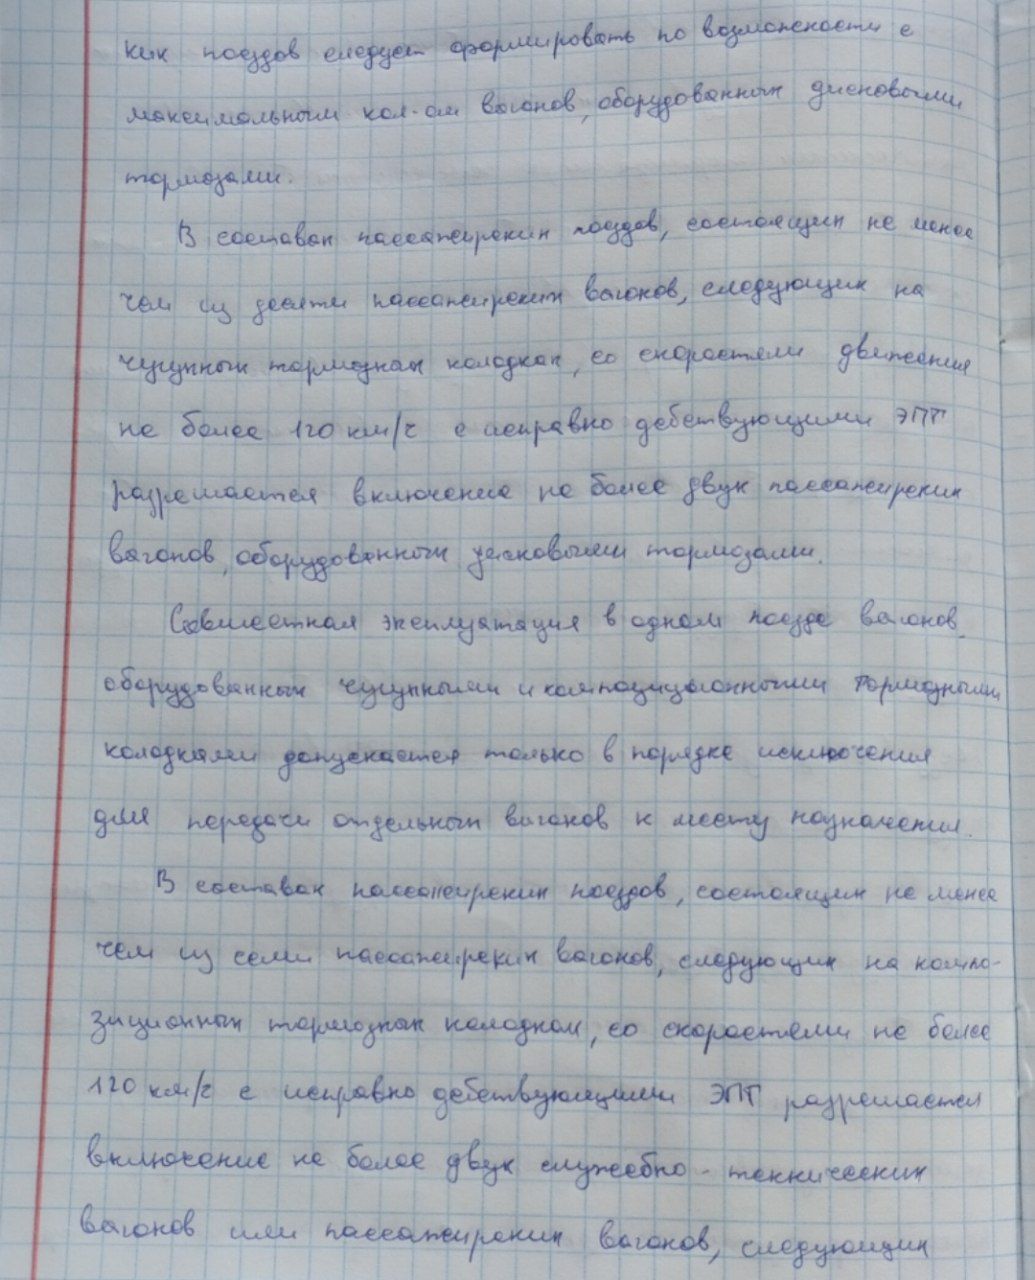 ких поездов следует формировать по возможности с
максимальным кол-ом вагонов, оборудованных дисковыми
тормозами.
В составах пассажирских поездов, состоящих не менее
чем из десяти пассажирских вагонов, следующих на
чугунных тормозных колодках, со скоростями движения
не более 120 км/ч с исправно действующими ЭПТ
разрешается включение не более двух пассажирских
вагонов, оборудованных дисковыми тормозами.
Совместная эксплуатация в одном поезде вагонов,
оборудованных чугунными и композиционными тормозными
колодками допускается только в порядке исключения
для передачи отдельных вагонов к месту назначения.
В составах пассажирских поездов, состоящих не менее
чем из семи пассажирских вагонов, следующих на компо-
зиционных тормозных колодках, со скоростями не более
120 км/ч с исправно действующими ЭПТ разрешается
включение не более двух служебно-технических
вагонов или пассажирских вагонов, следующих